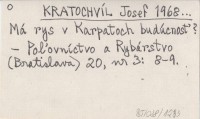 KRATOCHVÍL Josef 1968...
Má rys v Karpatoch budúcnosť?
– Poľovníctvo a Rybárstvo
(Bratislava) 20, nr 3: 8-9.